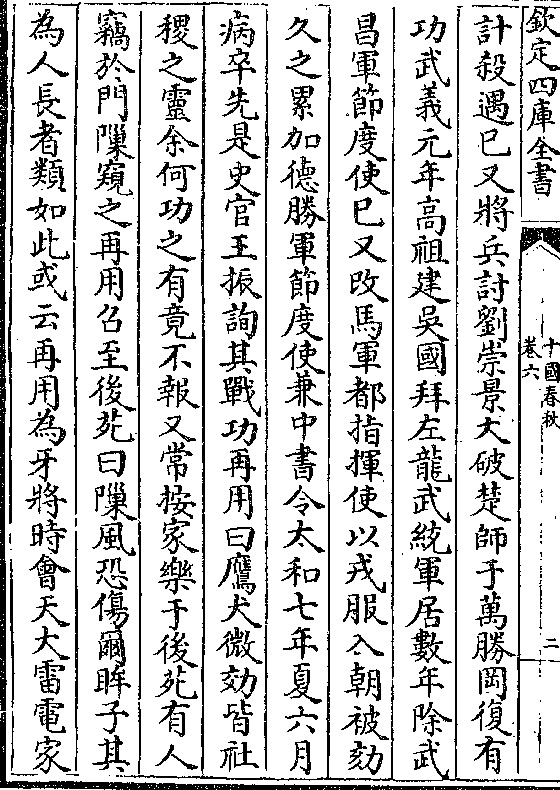 欽定四庫全書
十國春秋
卷六
二
計殺遇已又將兵討劉崇景大破楚師于萬勝岡復有
功武義元年高祖建吳國拜左龍武統軍居數年除武
昌軍節度使已又改馬軍都指揮使以戎服入朝被劾
久之累加德勝軍節度使兼中書令太和七年夏六月
病卒先是史官王振詢其戰功再用曰鷹犬微効皆社
稷之靈余何功之有竟不報又常按家樂于後苑有人
竊於門隟窺之再用召至後苑曰隟風恐傷爾眸子其
為人長者類如此或云再用為牙將時會天大雷電家